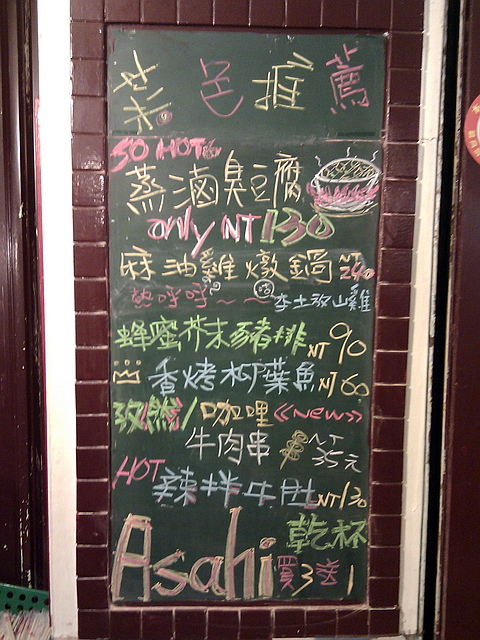 菜色推薦
SO HOT
蒸滷臭豆腐
only NT 130
麻油雞燉鍋 NT 240
熱呼呼~~ 李土放山雞
蜂蜜芥末豬排 NT 90
香烤柳葉魚 NT 60
孜然/咖哩 <<NEW>>
牛肉串 NT 35元
HOT 辣拌牛肚 NT 130
乾杯
Asahi 買3送1